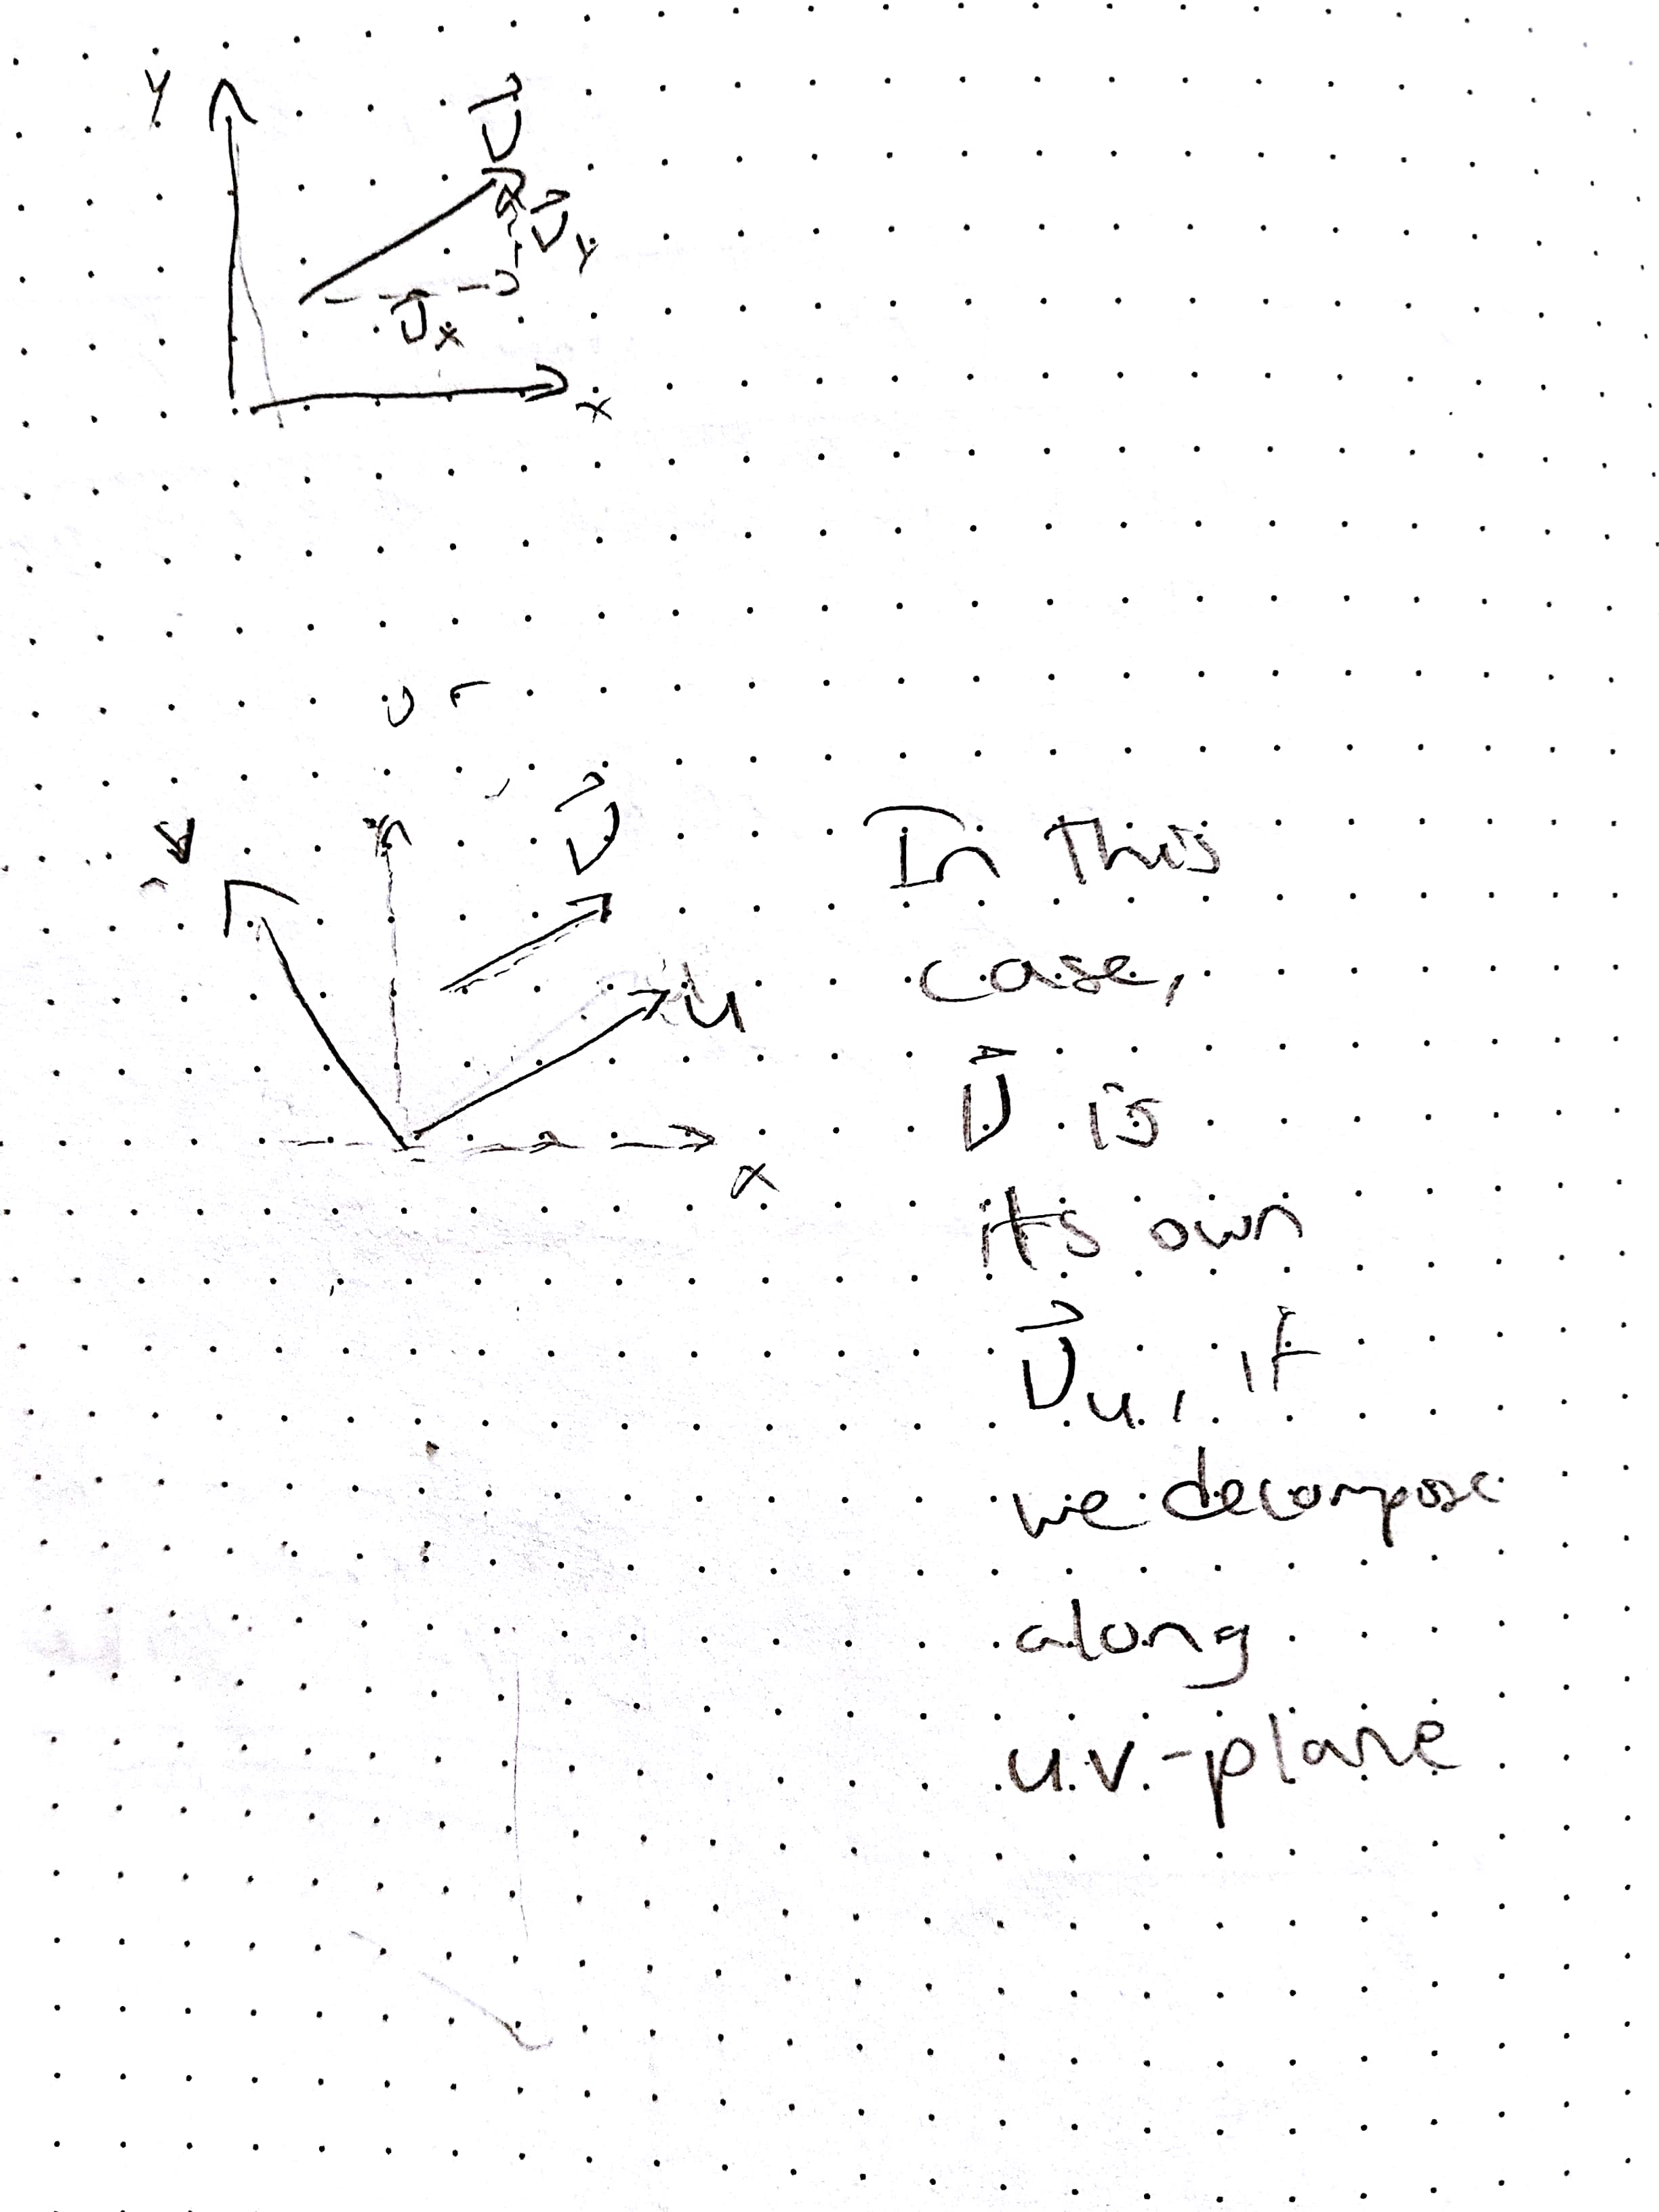 y
v⃗
v⃗y
v⃗x
x
or
v
v⃗
u
x
In this
case,
v⃗ is
its own
v⃗u, if
we decompose
along
uv-plane